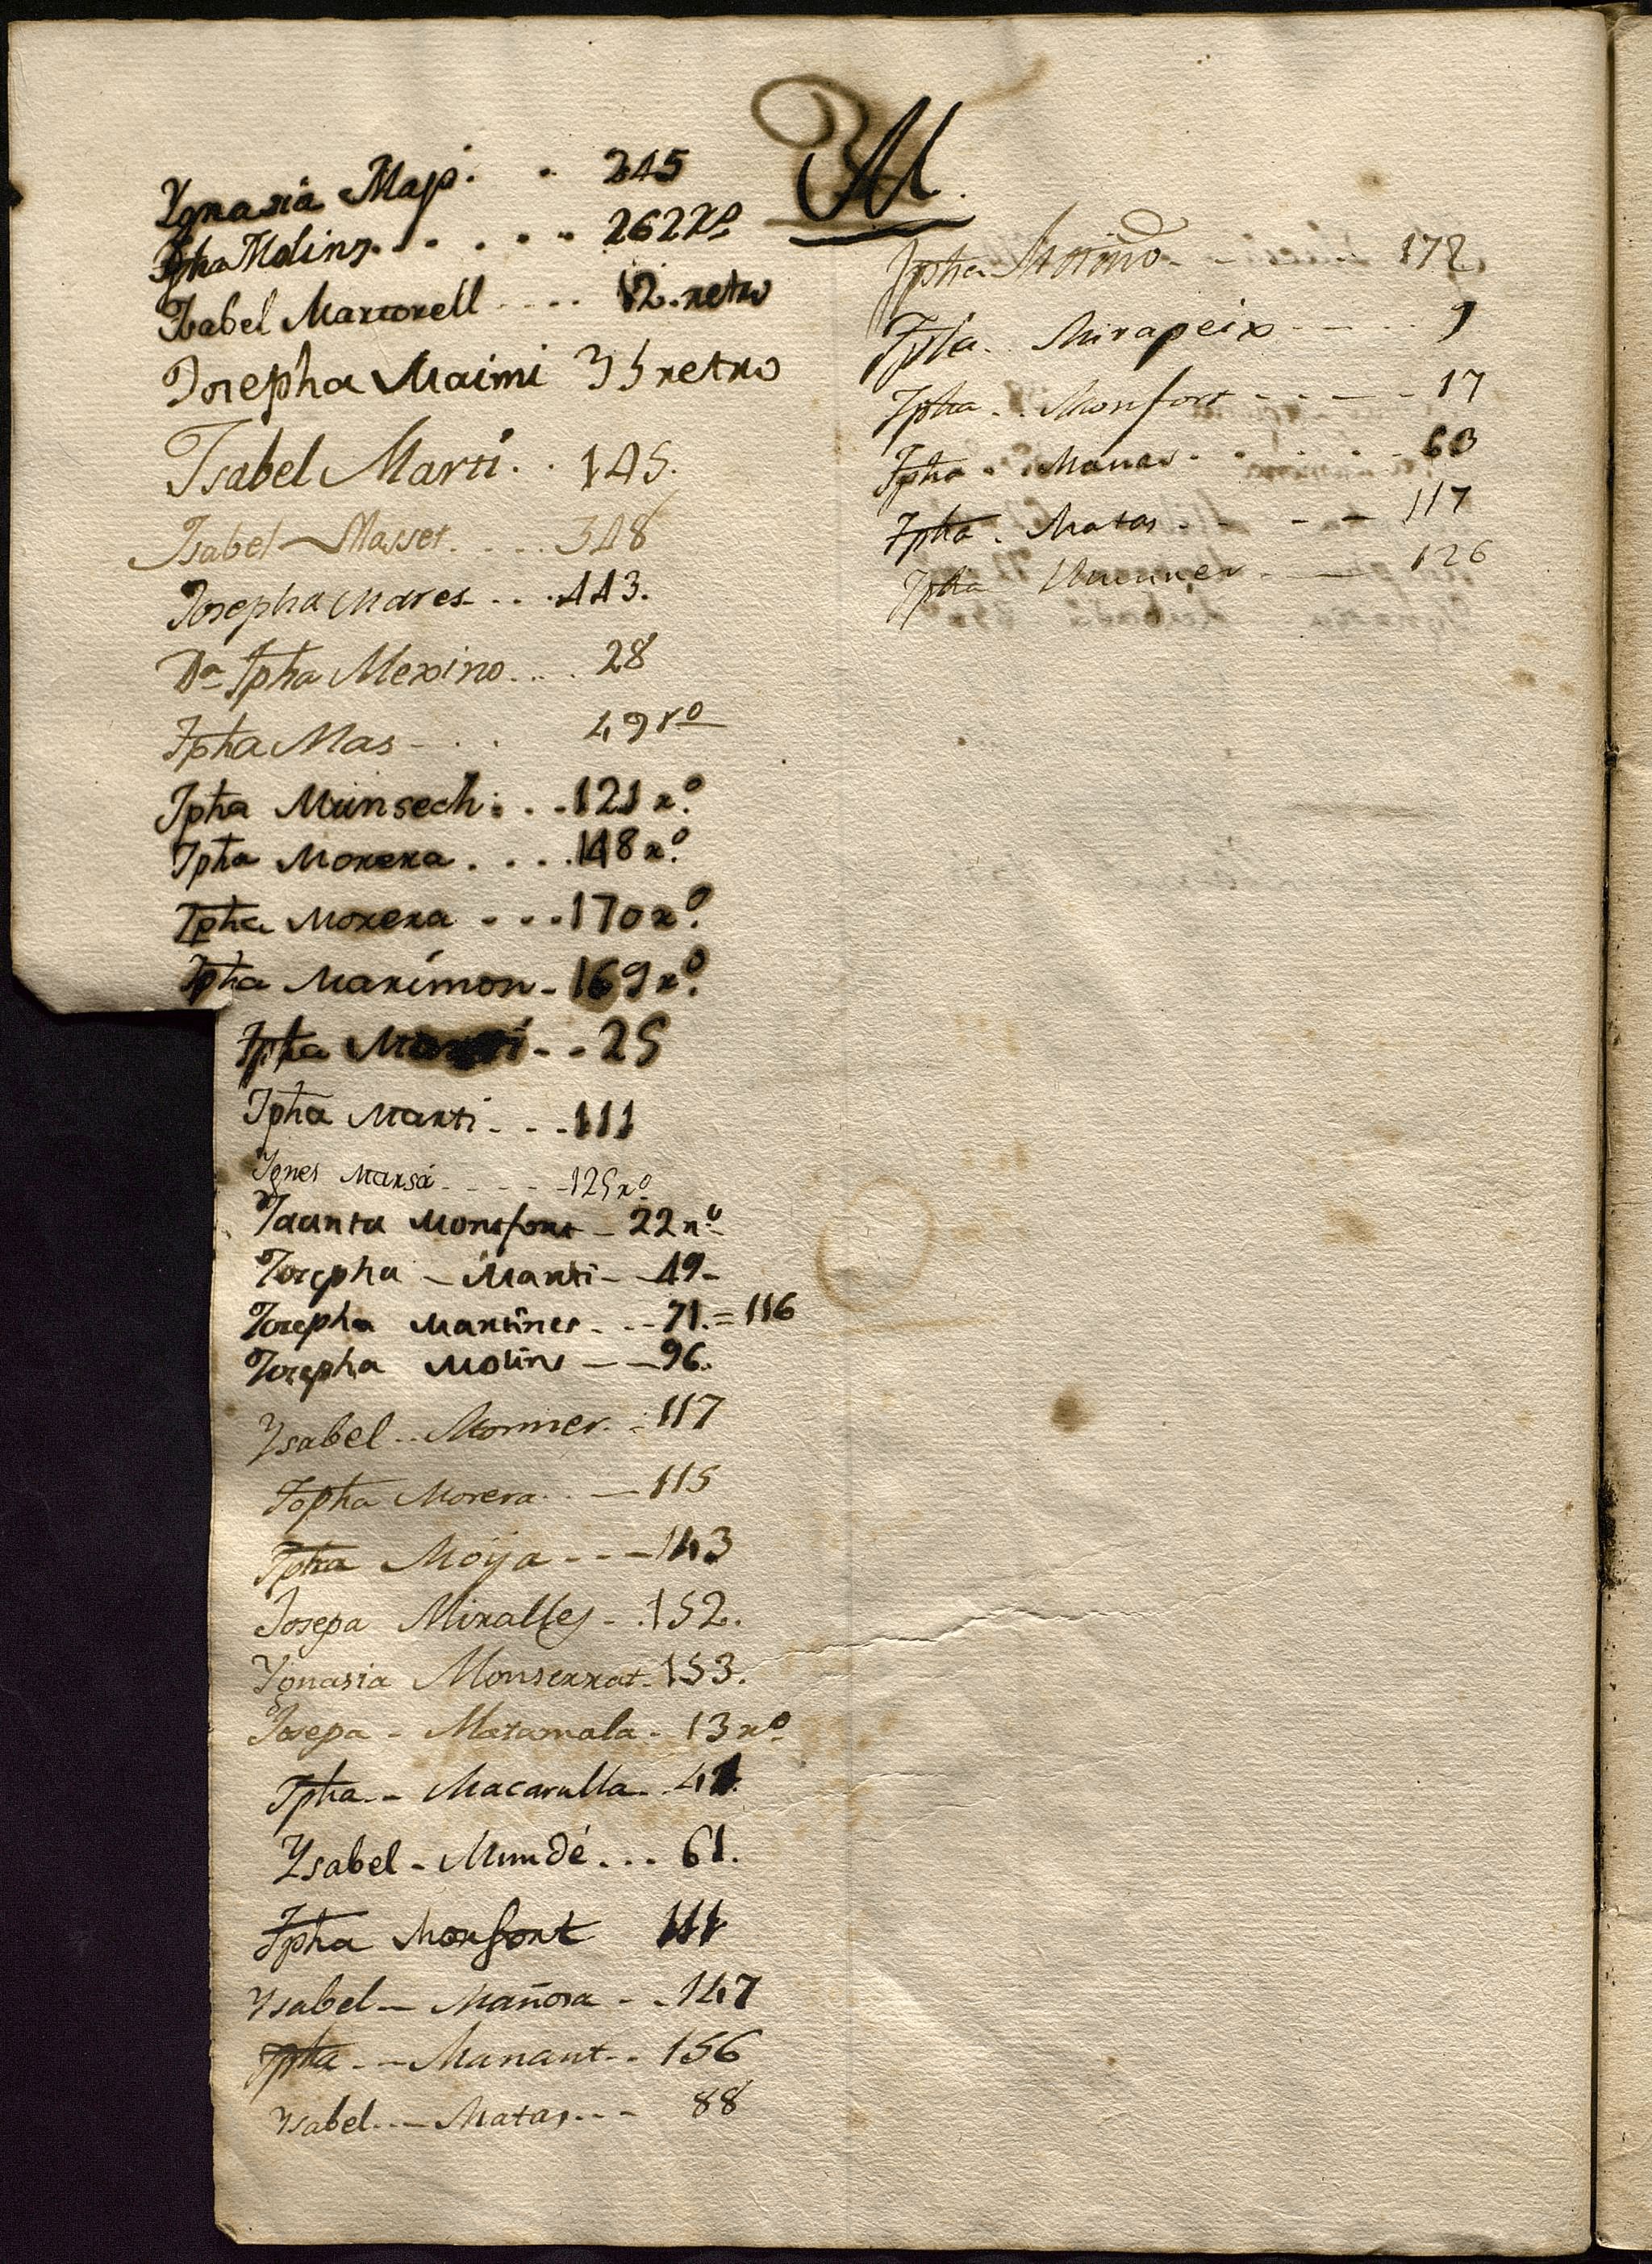 M
Ygnasia Maji . . 245
Jpha Molins . . . . . 262 rº
Isabel Martorell . . . . 12. retro
Josepha Maimi 35 retro
Isabel Marti . . 145.
Isabel Masset . . . . 348
Josepha Mares . . . 443.
Dª Jpha Merino . . . 28
Jpha Mas - . . 49 rº
Jpha Munsech . . . 121 rº
Jpha Morera . . . . 148 rº
Jpha Morera . . . 170 rº
Jpha Marimon - 169 rº
Jpha - - 25
Jpha Marti - - - 111
Ygnes Marsá - - - - - 125 rº
Jacinta Monsfort - 22 rº
Josepha - Marti - - 49 -
Josepha Martines - - - 71. = 116
Josepha Molins - - 96.
Ysabel . . Monner . - 117
Jopha Morera . . - 115
Jpha Moÿa - - - 143
Josepa Miralles - . 152.
Ygnasia Monserrat - 153.
Josepa - Matamala - 13 rº
Jpha - - Macarulla - 
Ysabel - Mundé . . . 61.
Jpha Monfort 111
Ysabel - Mañosa - - 147
Jpha - - Manaut - . 156
Ysabel - - - Matas - - - 88
Jpha 172
Jpha . Mirapeix - - - . . 9
Jpha . . Monfort - - - - - 17
Jpha . Manas - - . - . - 63
Jpha . Matas - - - - 117
Jpha 126